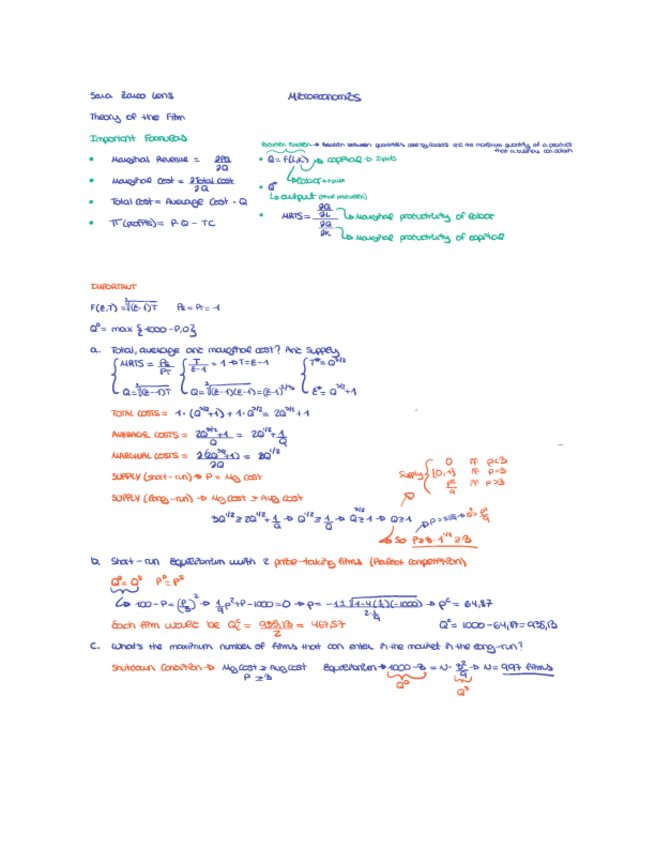 Microeconomics
Theory of the Firm
Important Formulas
• Marginal Revenue = ∂PQ/∂Q
• Marginal Cost = ∂Total cost/∂Q
• Total cost = Average Cost · Q
• π (profits) = P·Q − TC
Production Function → Relation between quantities and the maximum quantity of a product that a business can obtain
• Q = F(L,K) → capital → Inputs
↳ Labor → Inputs
• Q
↳ output
• MRTS = ∂Q/∂L → Marginal productivity of labor
∂Q/∂K → Marginal productivity of capital
IMPORTANT
F(E,T) = ∛(E-1)T PE = PT = 1
Qᴰ = max {1000-P,0}
a. Total, average and marginal cost? And Supply
MRTS = PE/PT T/E-1 = 1 → T = E-1 T* = Q^3/2
Q = ∛(E-1)T Q = ∛(E-1)(E-1) = (E-1)^2/3 E* = Q^3/2+1
TOTAL COSTS = 1·(Q^3/2+1) + 1·Q^3/2 = 2Q^3/2+1
AVERAGE COSTS = 2Q^3/2+1/Q = 2Q^1/2+1/Q
MARGINAL COSTS = ∂(2Q^3/2+1)/∂Q = 3Q^1/2
Supply { 0 IF P<3
{0,1} IF P=3
P²/9 IF P>3
SUPPLY (short-run) → P = Mg cost
SUPPLY (long-run) → Mg cost ≥ Avg cost
3Q^1/2 ≥ 2Q^1/2+1/Q → Q^1/2 ≥ 1/Q → Q^3/2 ≥ 1 → Q ≥ 1
→ So P≥3·1^1/2≥3
b. Short-run Equilibrium with 2 price-taking firms (Perfect competition)
Qᴰ = Qˢ Pᴰ = Pˢ
→ P = 64,87
Each firm would be = 935,13/2 = 467,57 = 1000-64,87 = 935,13
c. What's the maximum number of firms that can enter in the market in the long-run?
Shutdown Condition → Mg cost ≥ Avg cost Equilibrium → 1000-3 = N·3²/9 → N = 997 firms
P ≥ 3
Qᴰ Qˢ